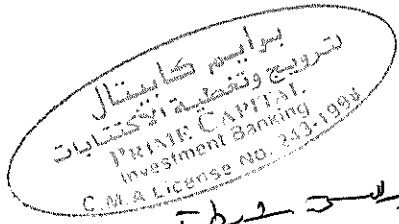 برايم كابيتال
لترويج وتغطية الاكتتابات
PRIME CAPITAL
Investment Banking
C.M.A License No. 243-1998